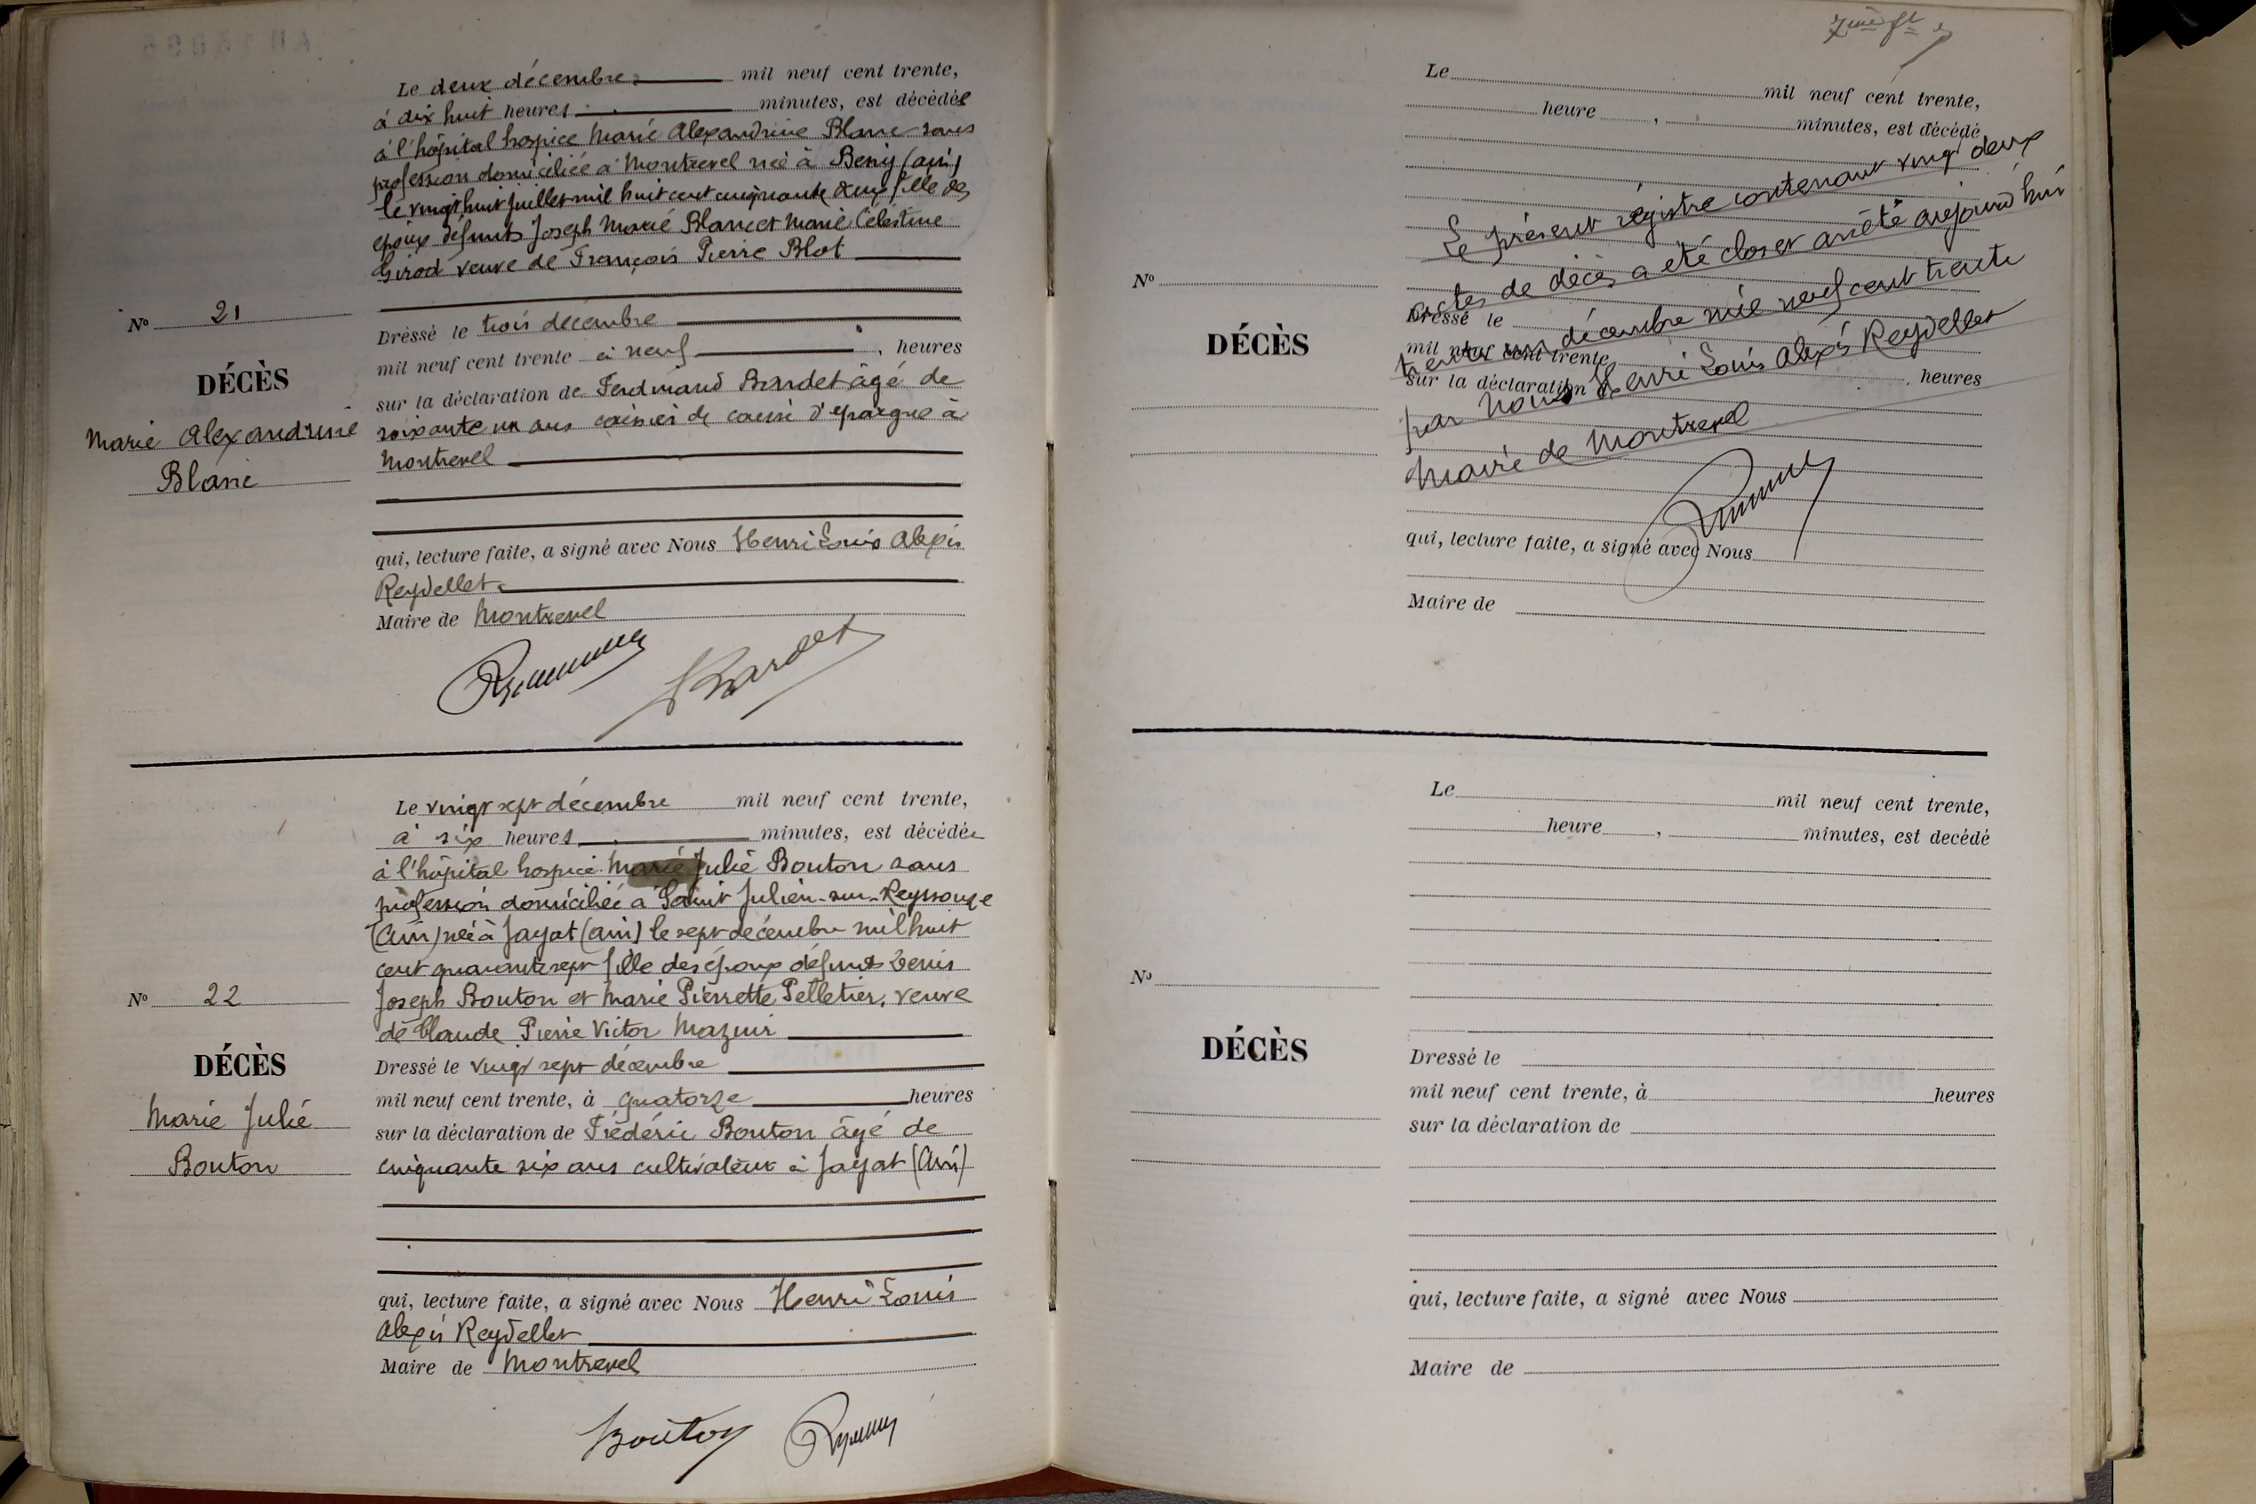 Le deux décembre mil neuf cent trente,
à dix huit heures minutes, est décédée
à l'hôpital hospice Marie Alexandrine Blanc sans
profession domiciliée à Montrevel née à Beny (ain)
le vingt huit juillet mil huit cent cinquante deux fille des
époux défunts Joseph Marie Blanc et Marie Célestine
Girod veuve de François Pierre Blot
No 21
DÉCÈS
Marie Alexandrine
Blanc
Dressé le trois décembre
mil neuf cent trente à neuf, heures
sur la déclaration de Ferdinand Bardet âgé de
soixante un ans caissier de caisse d'épargne à
Montrevel
qui, lecture faite, a signé avec Nous Henri Louis Alexis
Reydellet
Maire de Montrevel
Bardet
Le vingt sept décembre mil neuf cent trente,
à six heures minutes, est décédée
à l'hôpital hospice Marie Julie Bouton sans
profession domiciliée à Saint Julien-sur-Reyssouze
(Ain) née à Jayat (ain) le sept décembre mil huit
cent quarante sept fille des époux défunts Denis
Joseph Bouton et Marie Pierrette Pelletier, veuve
de Claude Pierre Victor Mazuir
No 22
DÉCÈS
Marie Julie
Bouton
Dressé le vingt sept décembre
mil neuf cent trente, à quatorze heures
sur la déclaration de Frédéric Bouton âgé de
cinquante six ans cultivateur à Jayat (Ain)
qui, lecture faite, a signé avec Nous Henri Louis
Alexis Reydellet
Maire de Montrevel
Bouton
7ème ft
Le mil neuf cent trente,
heure , minutes, est décédé
Le présent régistre contenant vingt deux
actes de décès a été clos et arrêté aujourd'hui
trente un décembre mil neuf cent trente
par Nous Henri Louis Alexis Reydellet
Maire de Montrevel
No
DÉCÈS
Dressé le
mil neuf cent trente
, heures
sur la déclaration de
qui, lecture faite, a signé avec Nous
Maire de
Le mil neuf cent trente,
heure , minutes, est decédé
No
DÉCÈS
Dressé le
mil neuf cent trente, à heures
sur la déclaration de
qui, lecture faite, a signé avec Nous
Maire de